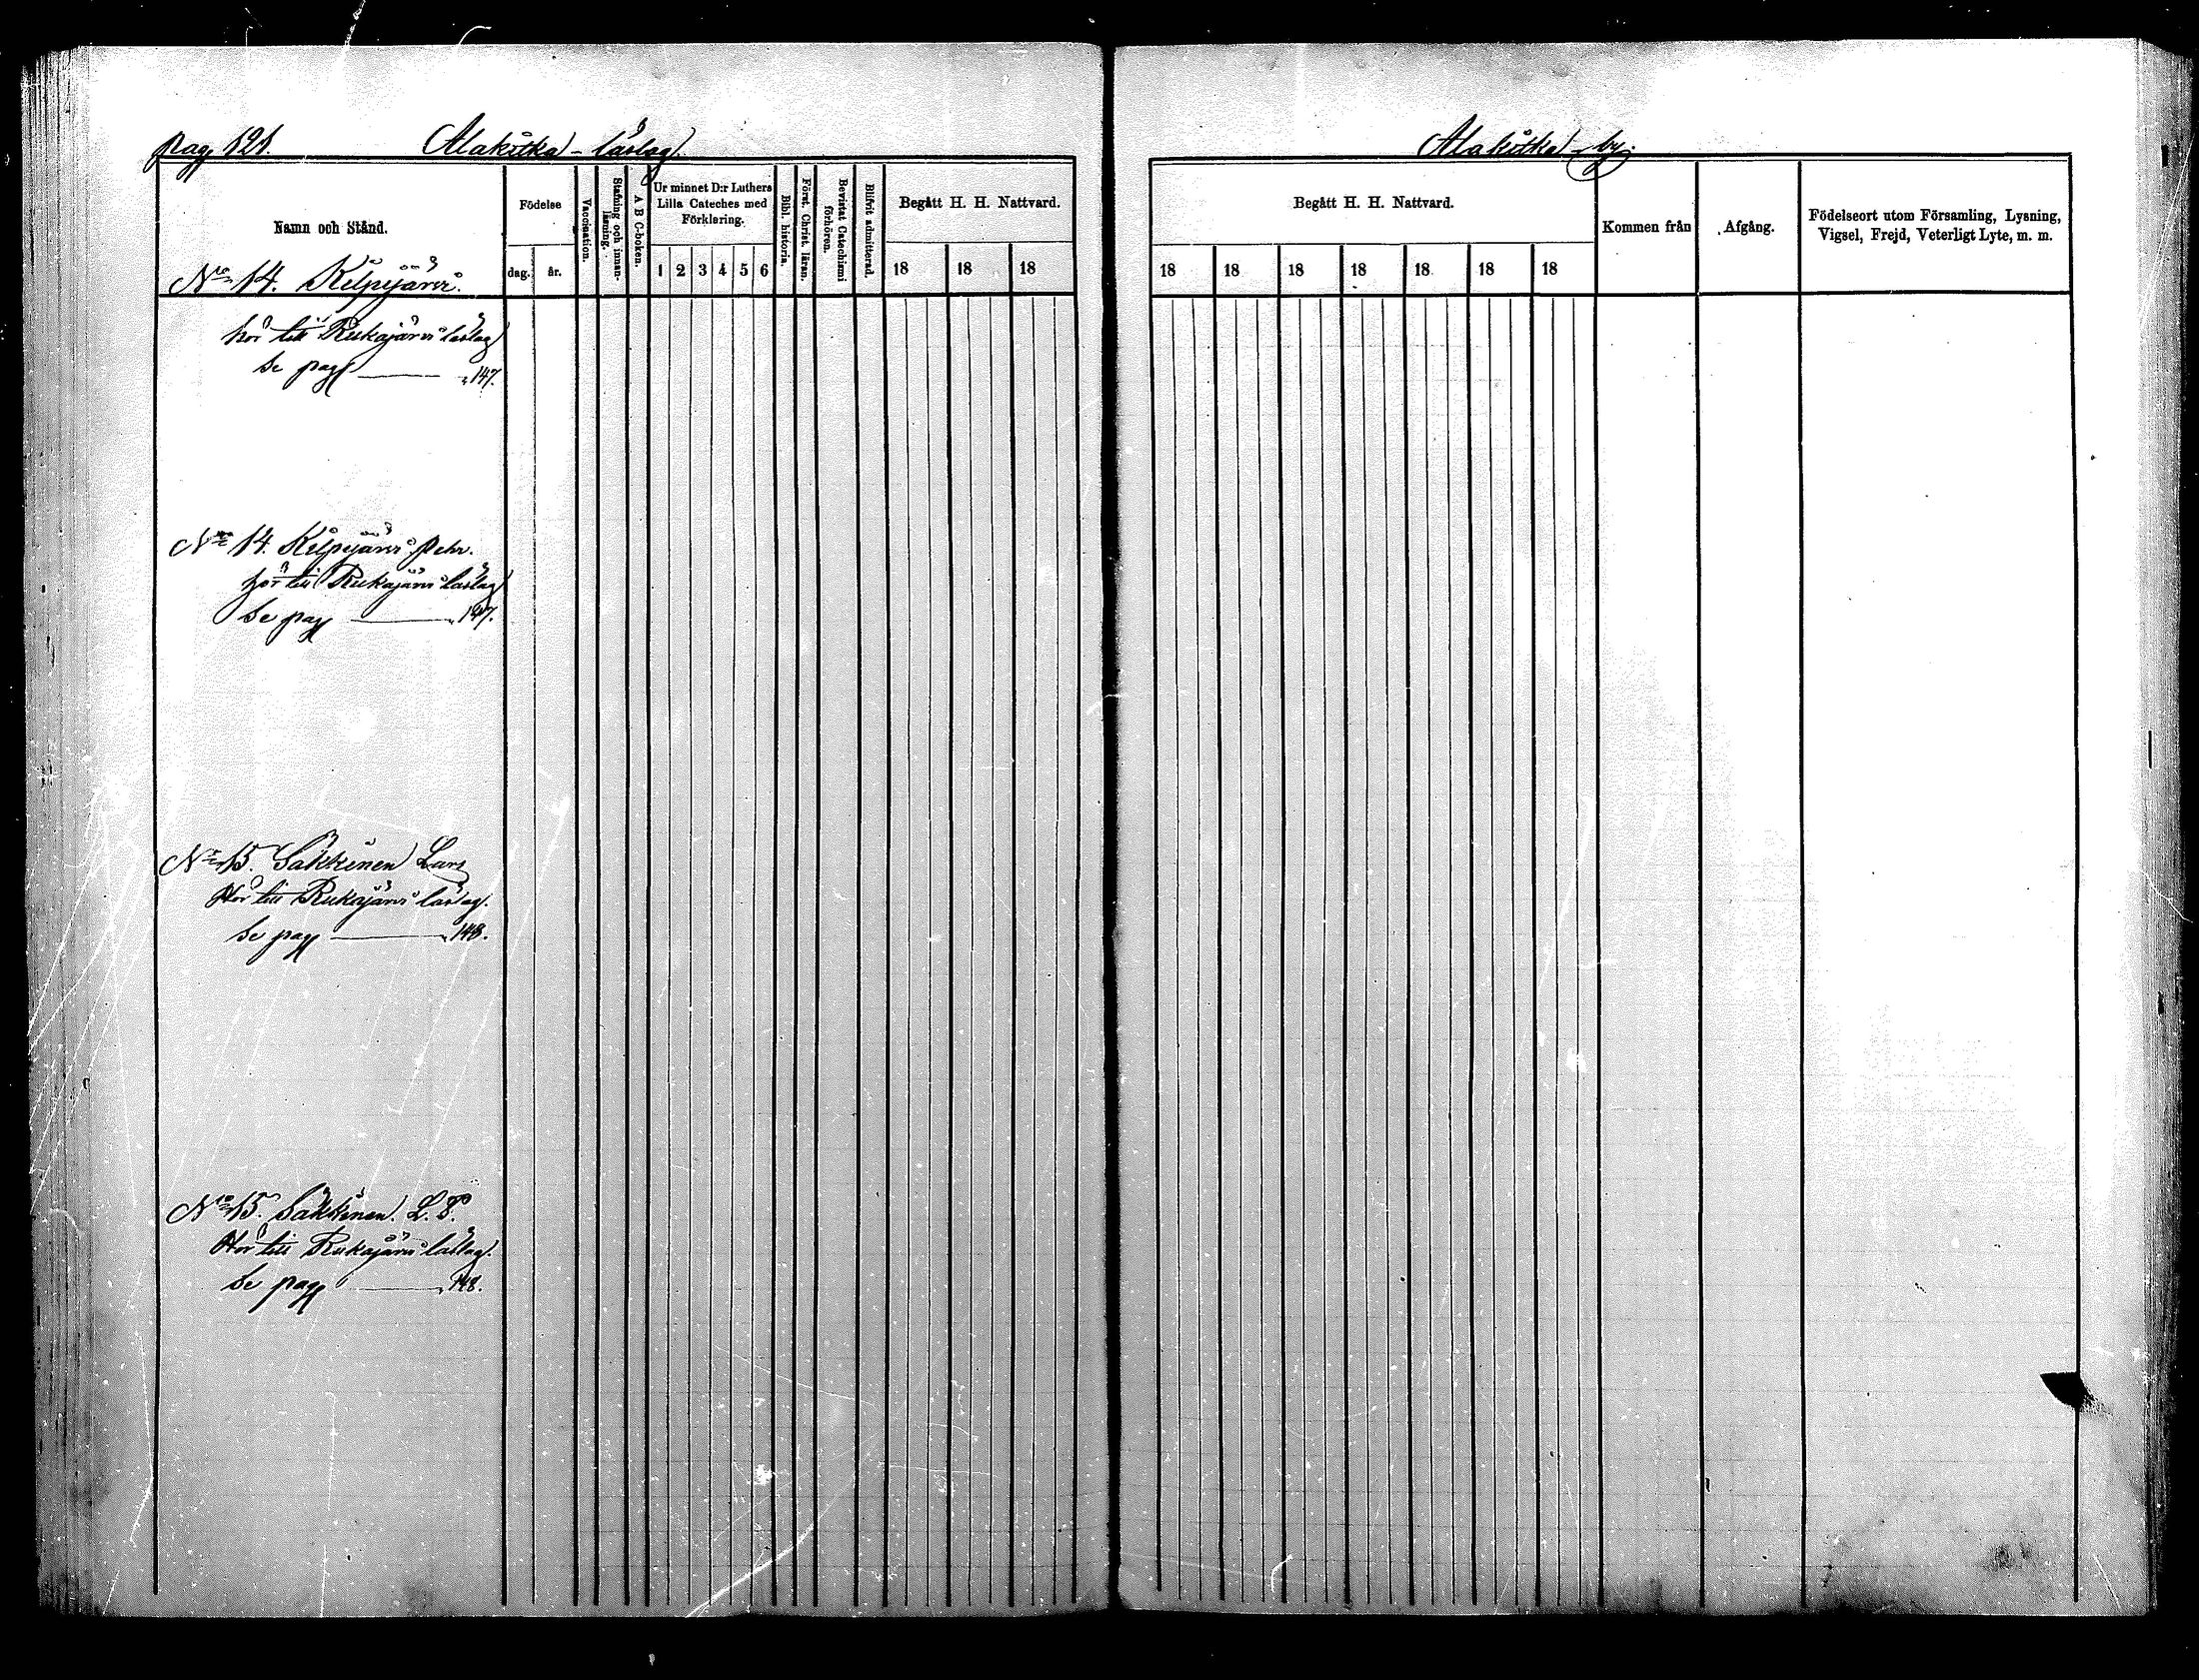 pag. 121. Alakitka - läslag.
Alakitka by.
Namn och Stånd.
Födelse
dag. år.
Vaccination.
Stafning och innanläsning.
A B C-boken.
Ur minnet D:r Luthers Lilla Cateches med Förklaring.
1 2 3 4 5 6
Bibl. historia.
Först. Christ. läran.
Bevistat Catechismi förhören.
Blifvit admitterad.
Begått H. H. Nattvard.
18 18 18
Begått H. H. Nattvard.
18 18 18 18 18 18 18
Kommen från
Afgång.
Födelseort utom Församling, Lysning,
Vigsel, Frejd, Veterligt Lyte, m. m.
No 14. Kilpijärvi.
hör till Rukajärvi läslag
Se pag 147.
No 14. Kilpijärvi Pehr.
hör till Rukajärvi läslag
Se pag 147.
No 15. Säkkinen Lars
Hör till Rukajärvi läslag.
Se pag 148.
No 15. Säkkinen. L. P.
Hör till Rukajärvi läslag.
Se pag 148.